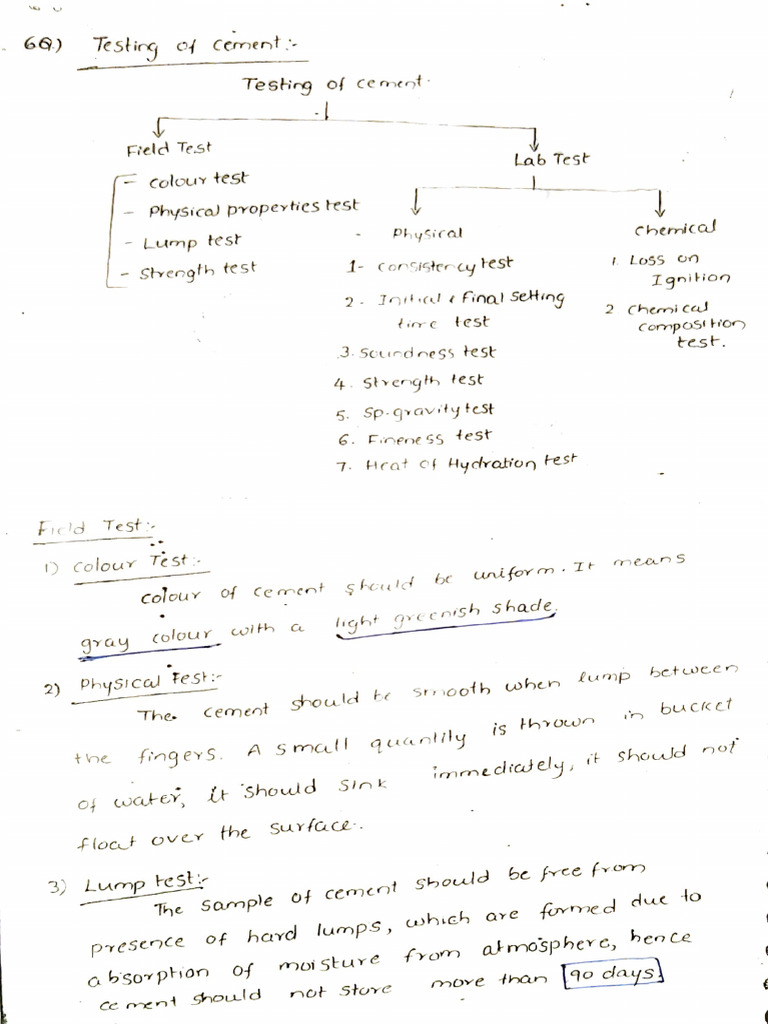 6Q.) Testing of cement:-
Testing of cement.
Field Test
Lab Test
- colour test
- Physical properties test
- Lump test
- Strength test
- Physical
1- consistency test
2. Initial & Final Setting
time test
3. Soundness test
4. Strength test
5. Sp. gravity test
6. Fineness test
7. Heat of Hydration test
Chemical
1. Loss on
Ignition
2 Chemical
composition
test.
Field Test:-
1) Colour Test:-
Colour of cement should be uniform. It means
gray colour with a light greenish shade.
2) Physical Test:-
The cement should be smooth when lump between
the fingers. A small quantity is thrown in bucket
of water, it should sink immediately, it should not
float over the surface.
3) Lump test:-
The sample of cement should be free from
presence of hard lumps, which are formed due to
absorption of moisture from atmosphere, hence
cement should not store more than 90 days.